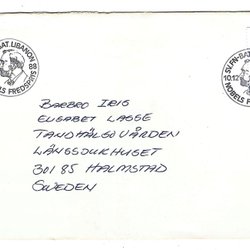 BAT. LIBANON 88
S FREDSPRIS
SV.FN-BAT
10.12
NOBELS FRED
BARBRO IRIG
ELISABET LAGGE
TANDHÄLSOVÅRDEN
LÅNGSDUKHUSET
301 85 HALMSTAD
SWEDEN